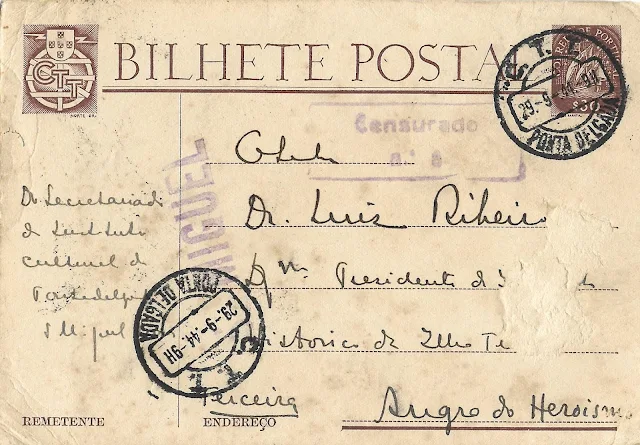 CTT
BILHETE POSTA
CORREIO DE PORTUGAL
$30
C. T. T.
29-9-44-9H
PONTA DELGADA
Censurado
MIGUEL
Dr. Luis Ribeiro
Dgmo Presidente do
Historico da Ilha Te
Terceira Angra do Heroismo
Do Secretariado
do Instituto
Cultural de
Ponta Delgada
S Miguel
PONTA DELGADA
29-9-44-9H
C. T. T.
REMETENTE ENDEREÇO